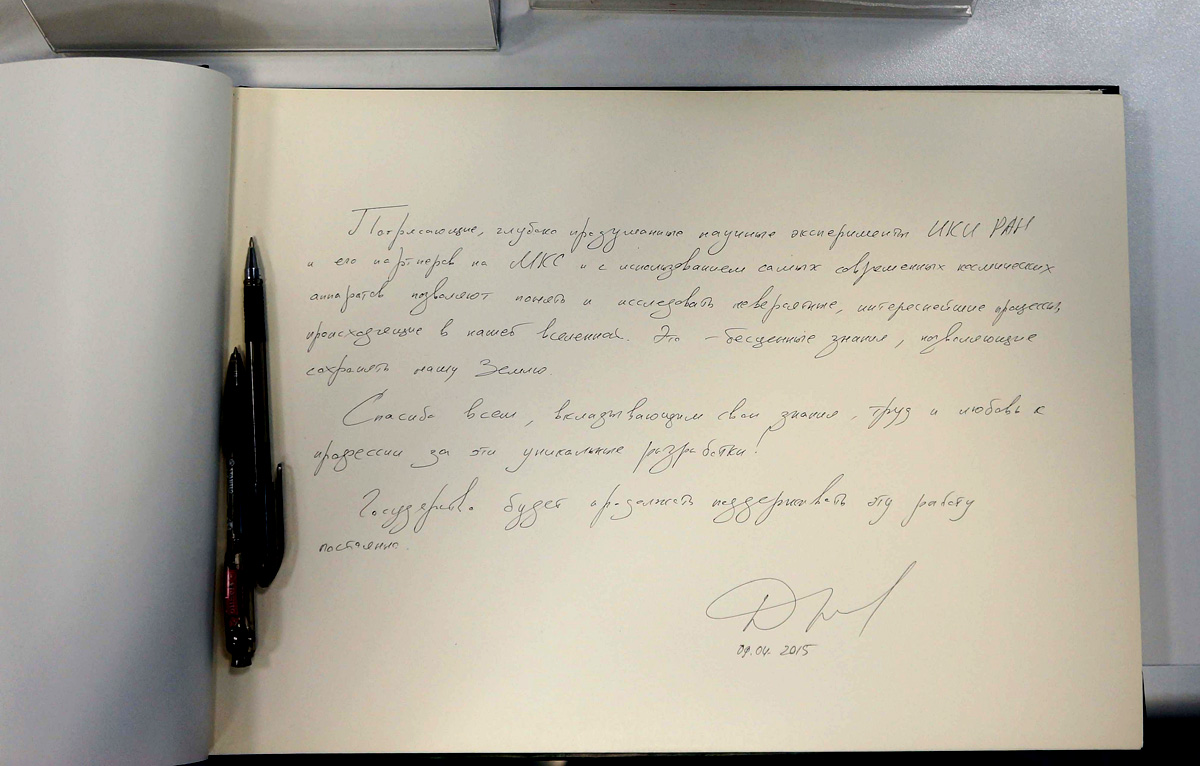 Потрясающие, глубоко продуманные научные эксперименты ИКИ РАН
и его партнеров на МКС и с использованием самых современных космических
аппаратов позволяют понять и исследовать невероятные, интереснейшие процессы,
происходящие в нашей вселенной. Это – бесценные знания, позволяющие
сохранять нашу Землю.
Спасибо всем, вкладывающим свои знания, труд и любовь к
профессии за эти уникальные разработки!
Государство будет продолжать поддерживать эту работу
постоянно.
2015